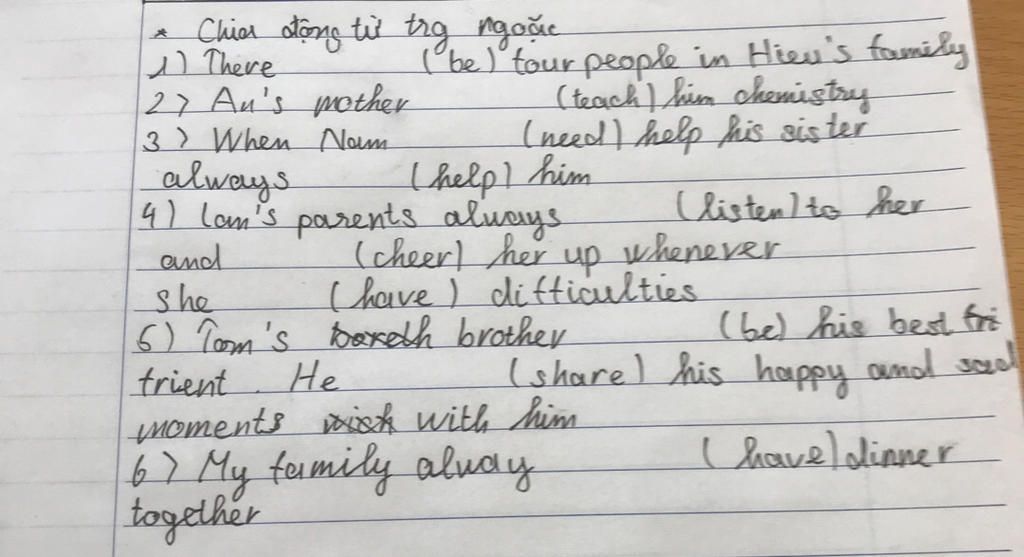 * Chia động từ trg ngoặc
1) There (be) four people in Hieu's family
2) An's mother (teach) him chemistry
3) When Nam (need) help his sister
always (help) him
4) Lan's parents always (listen) to her
and (cheer) her up whenever
she (have) difficulties
5) Tom's brother (be) his best fri
frient. He (share) his happy and sad
moments with him
6) My family alway (have) dinner
together